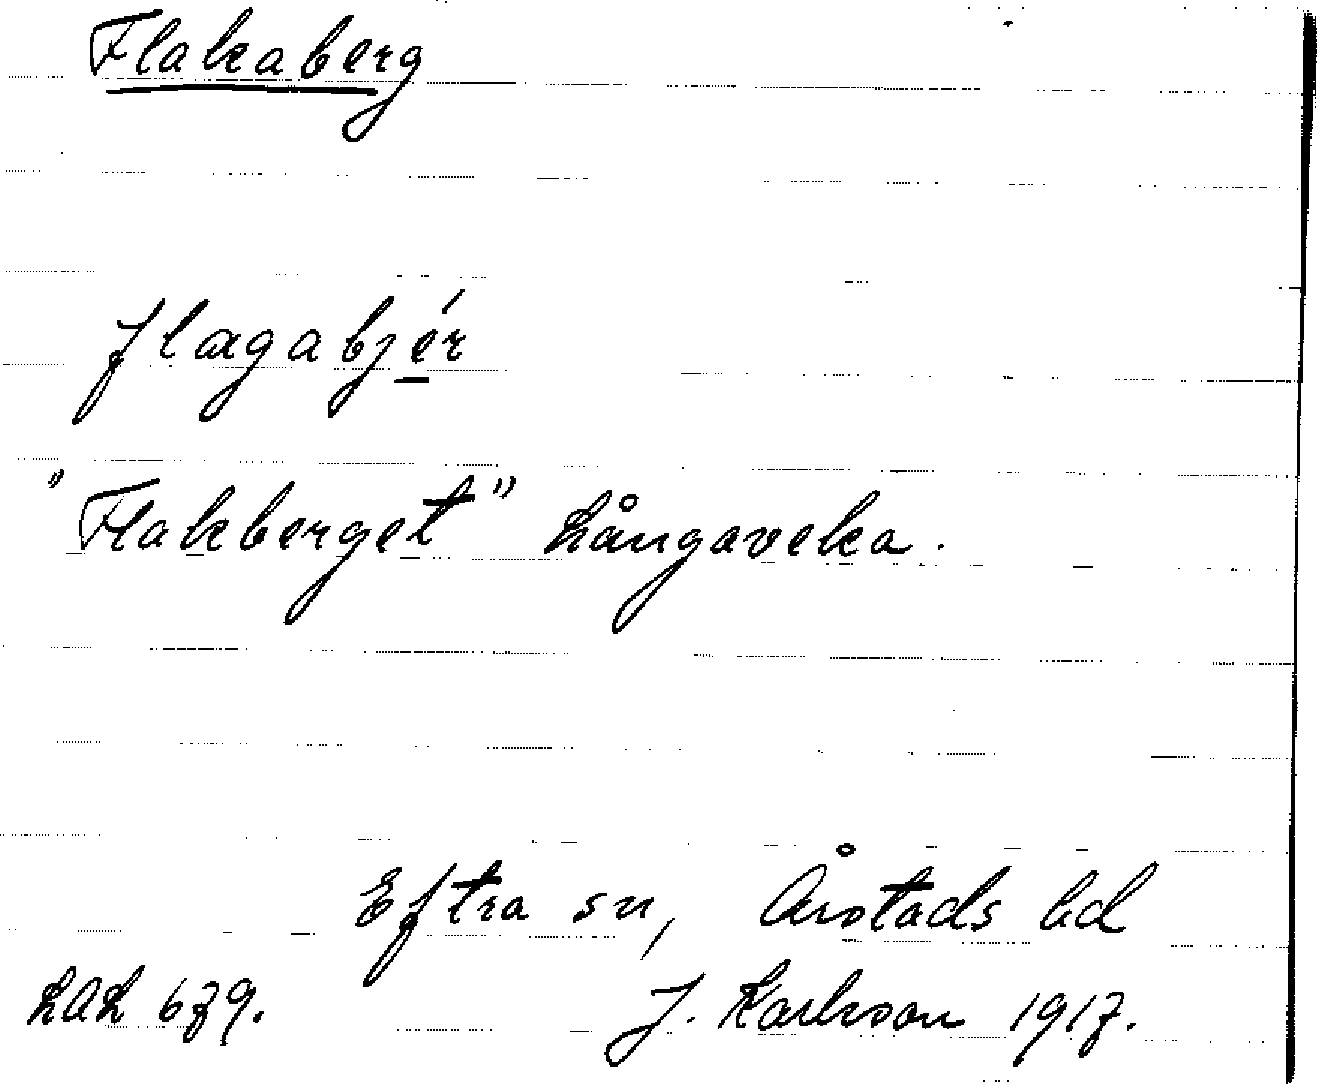 Flakaberg
flagabjér
"Flakberget" Långaveka.
Eftra sn, Årstads hd
LAL 679.
J. Karlsson 1917.